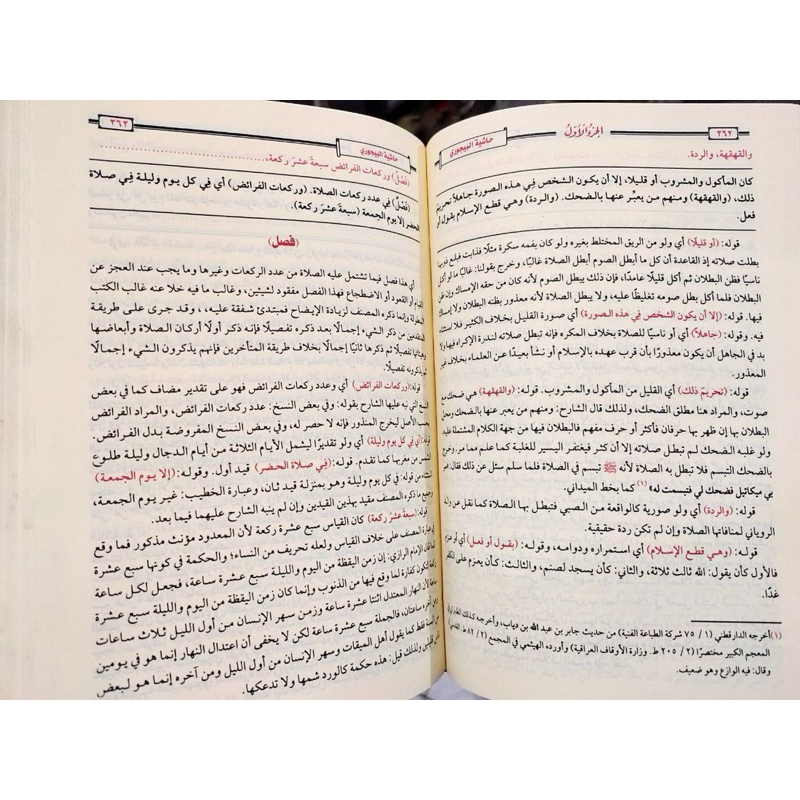 ٣٦٢
الجزء الأول
حاشية البيجوري
والقهقهة، والردة.
كان المأكول والمشروب أو قليلا، إلا أن يكون الشخص في هذه الصورة جاهلاً تحريم
ذلك، (والقهقهة) ومنهم من يعبّر عنها بالضحك. (والردة) وهي قطع الإسلام بقول أو
فعل.
قوله: (أو قليلًا) أي ولو من الريق المختلط بغيره ولو كان بفمه سكرة مثلًا فذابت فبلع ذوبها
بطلت صلاته إذ القاعدة أن كل ما أبطل الصوم أبطل الصلاة غالبًا، وخرج بقولنا: غالبًا ما لو أكل
ناسيًا فظن البطلان ثم أكل قليلًا عامدًا، فإن ذلك يبطل الصوم لأنه كان من حقه الإمساك وإن ظن
البطلان فلما أكل بطل صومه تغليظًا عليه، ولا يبطل الصلاة لأنه معذور بظنه البطلان ولا إمساك
فيها. قوله: (إلا أن يكون الشخص في هذه الصورة) أي صورة القليل بخلاف الكثير فلا استثناء
فيه. وقوله: (جاهلاً) أي أو ناسيًا للصلاة بخلاف المكره فإنه تبطل صلاته لندرة الإكراه فيها ولا
بد في الجاهل أن يكون معذورًا بأن قرب عهده بالإسلام أو نشأ بعيدًا عن العلماء بخلاف غير
المعذور.
قوله: (تحريم ذلك) أي القليل من المأكول والمشروب. قوله: (والقهقهة) هي ضحك مع
صوت، والمراد هنا مطلق الضحك، ولذلك قال الشارح: ومنهم من يعبر عنها بالضحك ومحل
البطلان بها إن ظهر بها حرفان فأكثر أو حرف مفهم فالبطلان فيها من جهة الكلام المشتملة عليه
ولو غلبه الضحك لم تبطل صلاته إلا أن كثر فيغتفر اليسير للغلبة كما علم مما مر. وخرج
بالضحك التبسم فلا تبطل به الصلاة لأنه ﷺ تبسم في الصلاة فلما سلم سئل عن ذلك فقال: مر
بي ميكائيل فضحك لي فتبسمت له (١) كما بخط الميداني.
قوله: (والردة) أي ولو صورية كالواقعة من الصبي فتبطل بها الصلاة كما نقل عن والد
الروياني لمنافاتها الصلاة وإن لم تكن ردة حقيقية.
قوله: (وهي قطع الإسلام) أي استمراره ودوامه، وقوله: (بقول أو فعل) أي أو عزم
فالأول كأن يقول: الله ثالث ثلاثة، والثاني: كأن يسجد لصنم، والثالث: كأن يعزم على الكفر
غدًا.
(١) أخرجه الدارقطني (١ / ٧٥ شركة الطباعة الفنية) من حديث جابر بن عبد الله بن دياب، وأخرجه كذلك
المعجم الكبير مختصرًا (٢ / ٢٠٥ ط. وزارة الأوقاف العراقية) وأورده الهيثمي في المجمع (٢ / ٨٢ ط القدسي)
وقال: فيه الوازع وهو ضعيف.
حاشية البيجوري
٣٦٣
(فصل) وركعات الفرائض سبعة عشر ركعة،
(فصل) في عدد ركعات الصلاة. (وركعات الفرائض) أي في كل يوم وليلة في صلاة
الحضر إلا يوم الجمعة (سبعة عشر ركعة).
(فصل)
أي هذا فصل فيما تشتمل عليه الصلاة من عدد الركعات وغيرها وما يجب عند العجز عن
القيام أو القعود أو الاضطجاع فهذا الفصل مفقود لشيئين، وغالب ما فيه خلا عنه غالب الكتب
المطولة وإنما ذكره المصنف لزيادة الإيضاح فمبتدئ شفقة عليه، وقد جرى على طريقة
المتقدمين من ذكر الشيء إجمالًا بعد ذكره تفصيلًا فإنه ذكر أولًا أركان الصلاة وأبعاضها
وهيئاتها تفصيلًا ثم ذكرها ثانيًا إجمالًا بخلاف طريقة المتأخرين فإنهم يذكرون الشيء إجمالًا
ثم يذكرونه تفصيلًا.
قوله: (وركعات الفرائض) أي وعدد ركعات الفرائض فهو على تقدير مضاف كما في بعض
النسخ التي نبه عليها الشارح بقوله: وفي بعض النسخ: عدد ركعات الفرائض، والمراد الفرائض
بحسب الأصل ليخرج المنذور فإنه لا حصر له، وفي بعض النسخ المفروضة بدل الفرائض.
قوله: (أي في كل يوم وليلة) أي ولو تقديرًا ليشمل الأيام الثلاثة من أيام الدجال وليلة طلوع
الشمس من مغربها كما تقدم. قوله: (في صلاة الحضر) قيد أول. وقوله: (إلا يوم الجمعة)
أي في قوله: في كل يوم وليلة وهو بمنزلة قيد ثان، وعبارة الخطيب: غير يوم الجمعة،
وجميع ما ذكره المصنف مقيد بهذين القيدين وإن لم ينبه الشارح عليهما فيما بعد.
قوله: (سبعة عشر ركعة) كان القياس سبع عشرة ركعة لأن المعدود مؤنث مذكور فما وقع
في عبارة المصنف على خلاف القياس ولعله تحريف من النساء؛ والحكمة في كونها سبع عشرة
كما أفاده الإمام الرازي: إن زمن اليقظة من اليوم والليلة سبع عشرة ساعة، فجعل لكل ساعة
ركعة لتكون كفارة لما وقع فيها من الذنوب وإنما كان زمن اليقظة من اليوم والليلة سبع عشرة
ساعة لأن النهار المعتدل اثنتا عشرة ساعة وزمن سهر الإنسان من أول الليل ثلاث ساعات
ومن آخره ساعتان، فالجملة سبع عشرة ساعة لكن لا يخفى أن اعتدال النهار إنما هو في يومين
من السنة فقط كما يقول أهل الميقات وسهر الإنسان من أول الليل ومن آخره إنما هو لبعض
ولذلك قيل: هذه حكمة كالورد شمها ولا تدعكها.